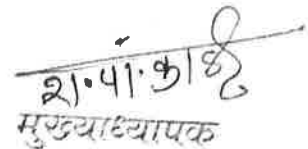 श.पां.काळे
मुख्याध्यापक